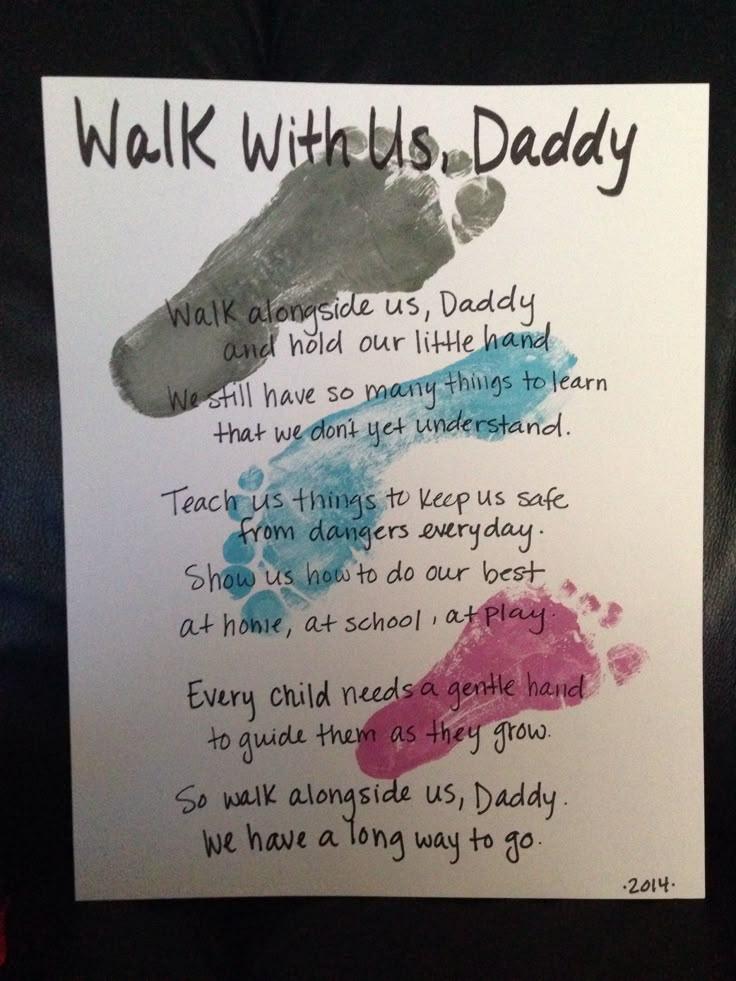 Walk With Us, Daddy
Walk alongside us, Daddy
and hold our little hand
We still have so many things to learn
that we don't yet understand.
Teach us things to keep us safe
from dangers everyday.
Show us how to do our best
at home, at school, at play.
Every child needs a gentle hand
to guide them as they grow.
So walk alongside us, Daddy.
We have a long way to go.
·2014·